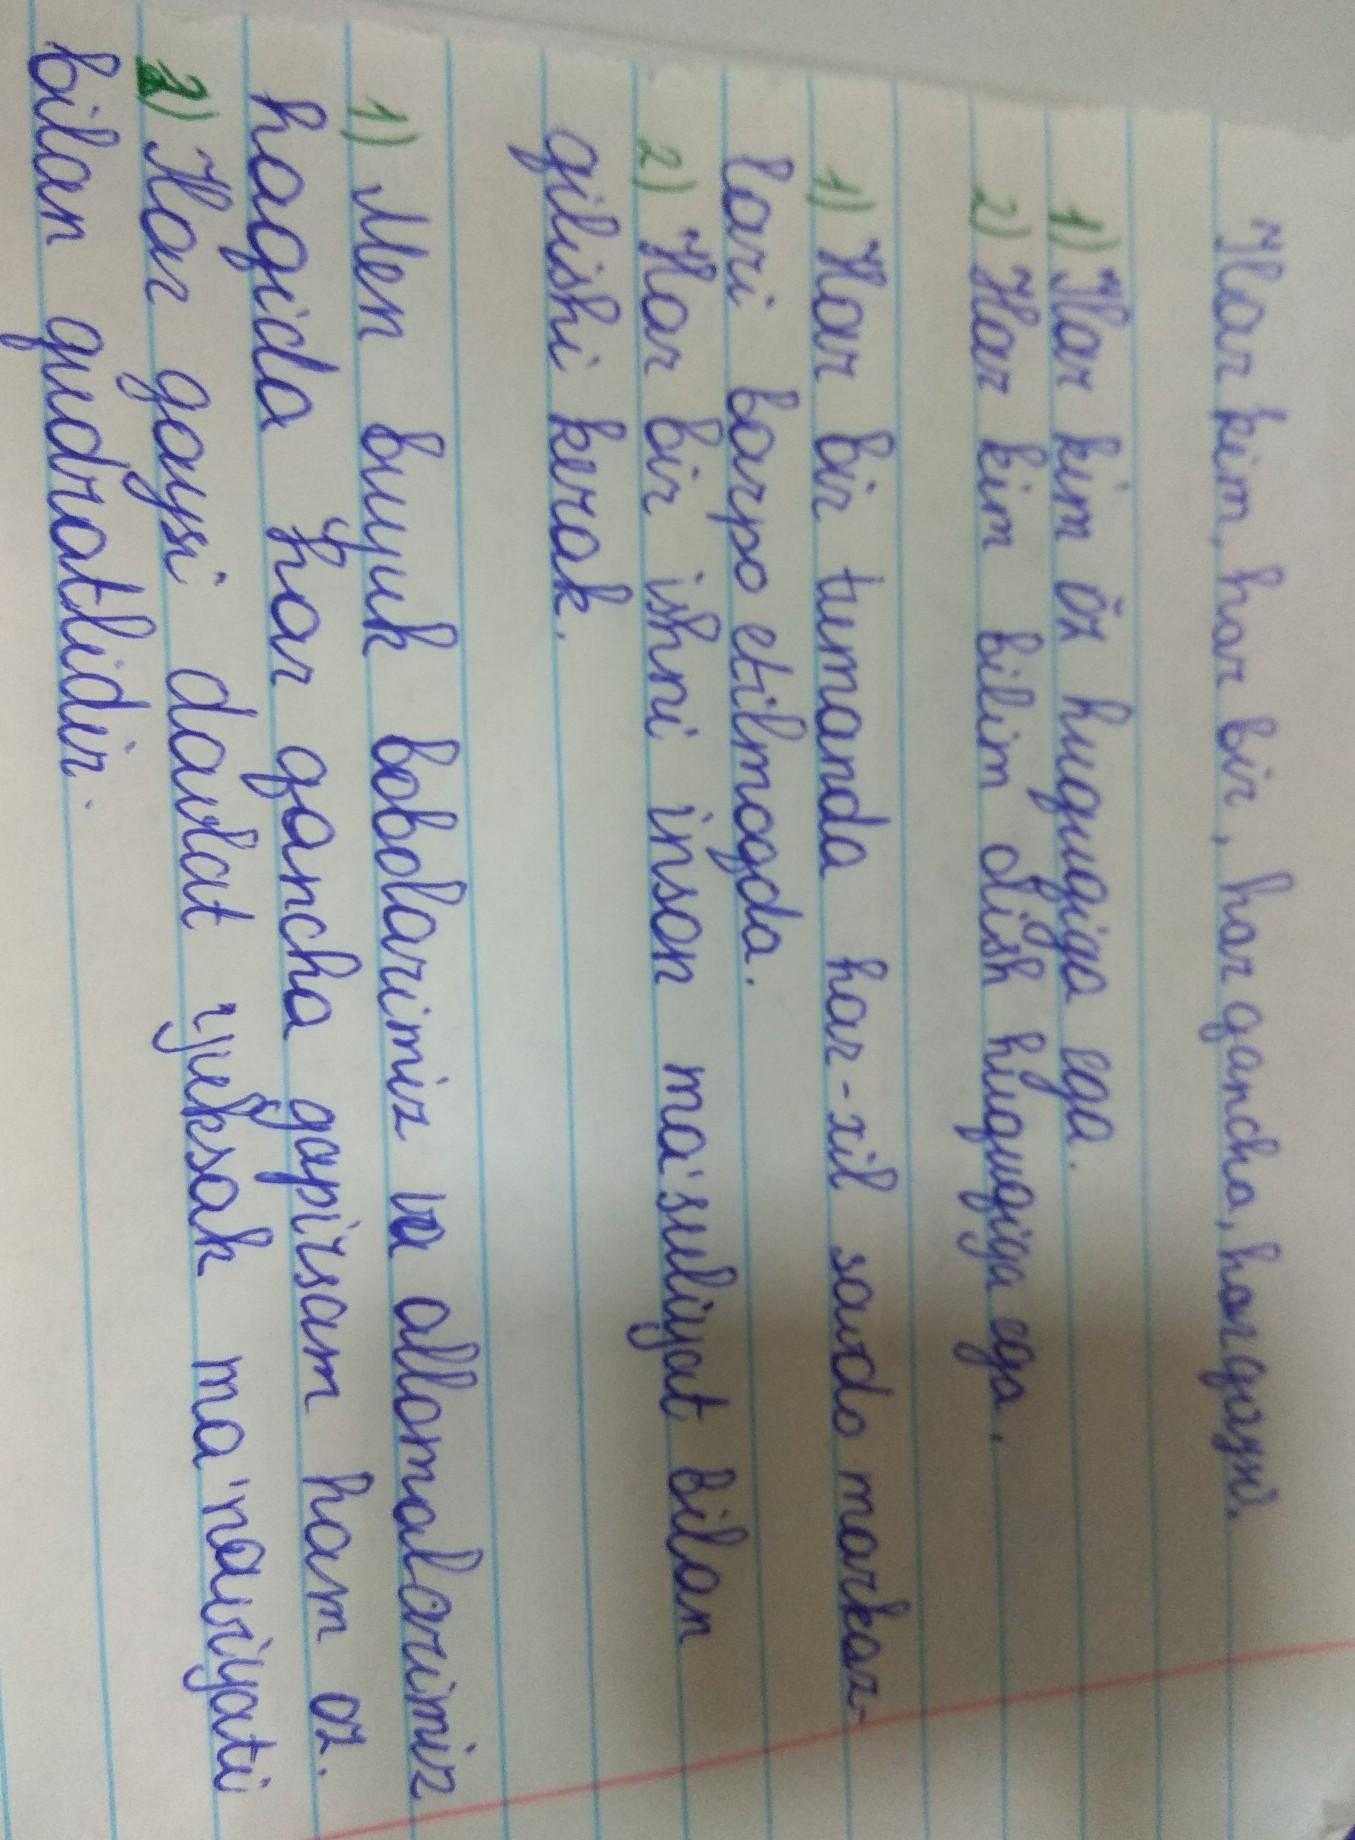 Har kim, har bir, har qancha, har qaysi.
1) Har kim öz huquqiga ega.
2) Har kim bilim olish huquqiga ega.
1) Har bir tumanda har-xil savdo markaz-
lari barpo etilmoqda.
2) Har bir ishni inson ma'suliyat bilan
qilishi kerak.
1) Men buyuk bobolarimiz va allomalarimiz
haqida har qancha gapirsam ham oz.
2) Har qaysi davlat yuksak ma'naviyati
bilan qudratlidir.